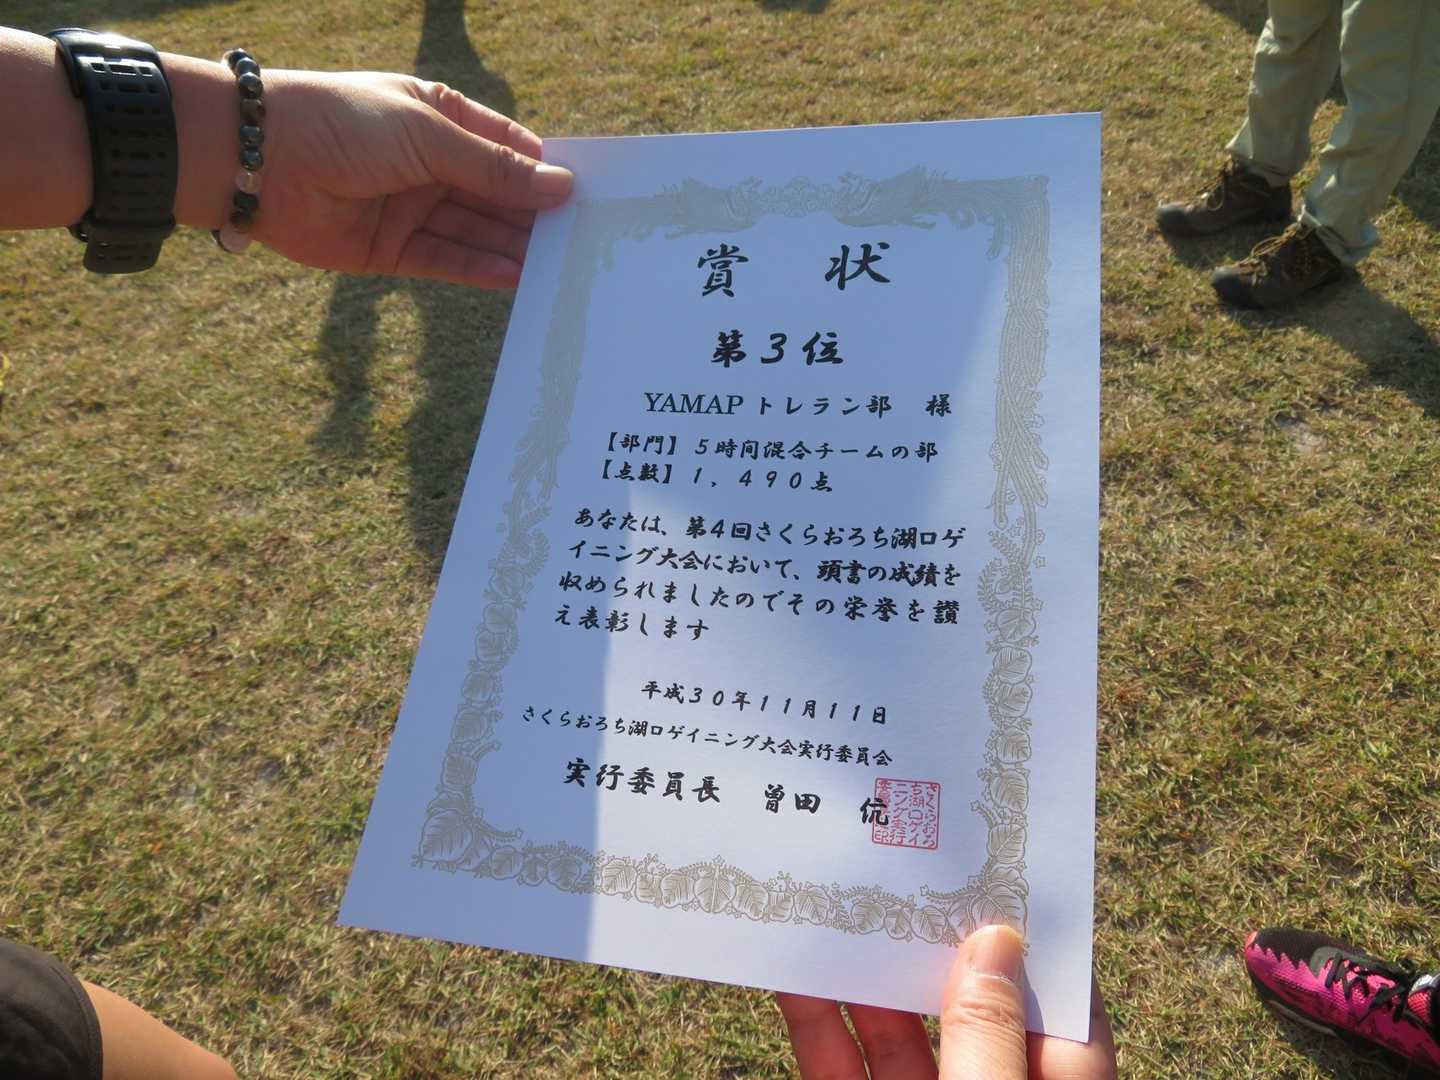 賞 状
第３位
YAMAP トレラン部 様
【部門】５時間混合チームの部
【点数】１，４９０点
あなたは、第４回さくらおろち湖ロゲ
イニング大会において、頭書の成績を
収められましたのでその栄誉を讃
え表彰します
平成３０年１１月１１日
さくらおろち湖ロゲイニング大会実行委員会
実行委員長 曽田 伉
さくらおろ
ち湖ロゲイ
ニング実行